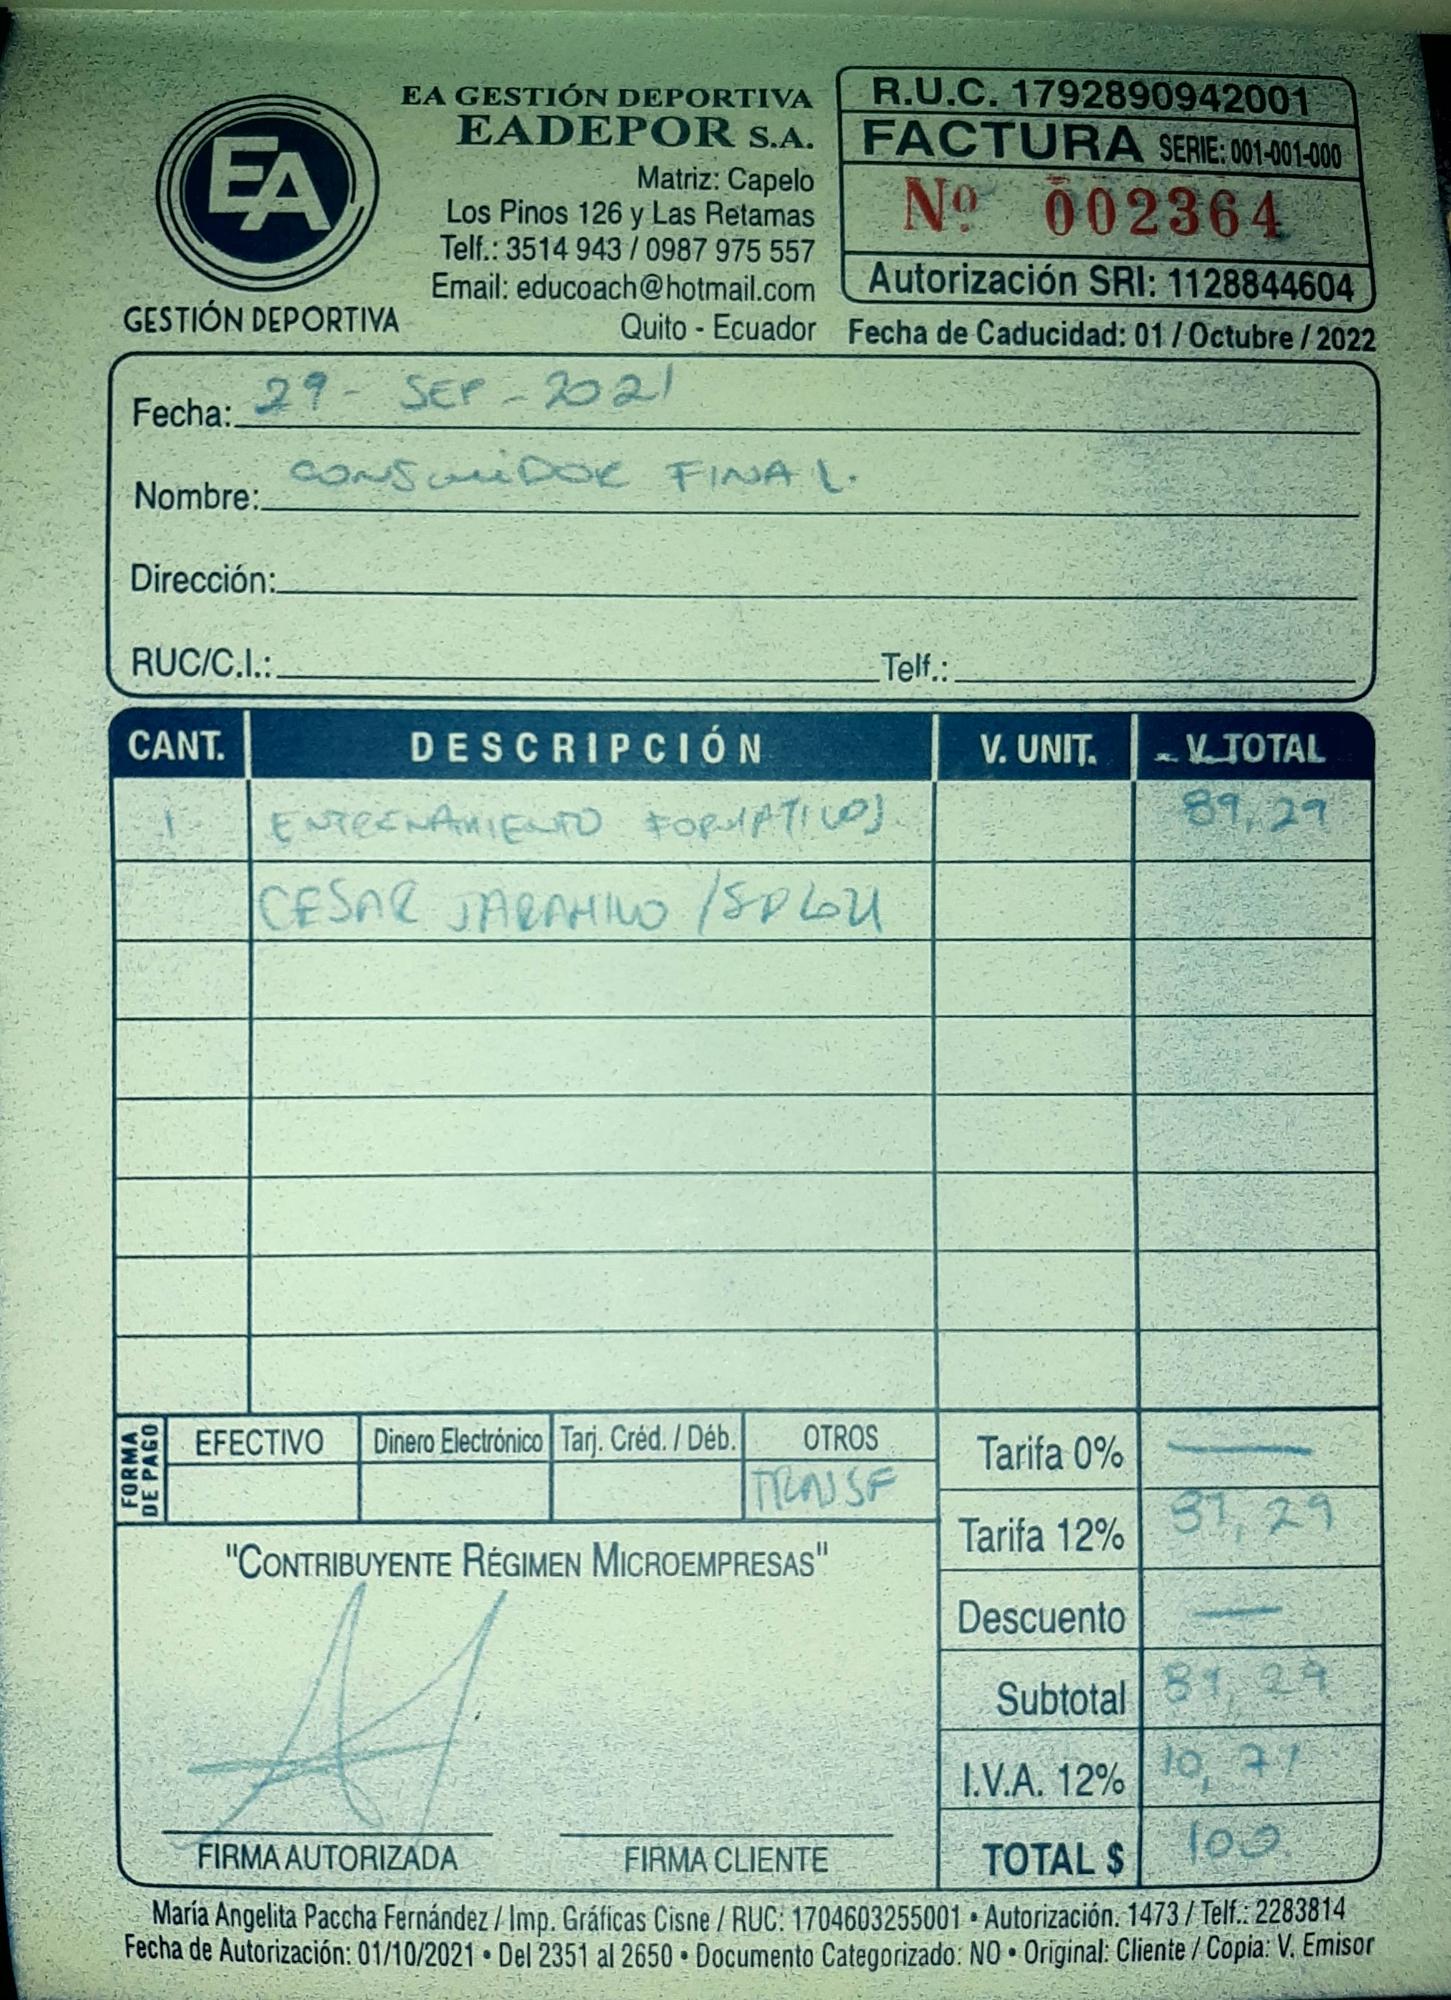 EA
GESTIÓN DEPORTIVA
EA GESTIÓN DEPORTIVA
EADEPOR S.A.
Matriz: Capelo
Los Pinos 126 y Las Retamas
Telf.: 3514 943 / 0987 975 557
Email: educoach@hotmail.com
Quito - Ecuador
R.U.C. 1792890942001
FACTURA SERIE: 001-001-000
Nº 002364
Autorización SRI: 1128844604
Fecha de Caducidad: 01 / Octubre / 2022
Fecha: 29 - SEP - 2021
Nombre: CONSUMIDOR FINAL.
Dirección:
RUC/C.I.: Telf.:
CANT. DESCRIPCIÓN V. UNIT. V. TOTAL
1 ENTRENAMIENTO FORMATIVOS 89,29
CESAR JARAMILLO /
FORMA DE PAGO
EFECTIVO Dinero Electrónico Tarj. Créd. / Déb. OTROS
TRANSF
Tarifa 0% —
Tarifa 12% 89,29
Descuento —
Subtotal 89,29
I.V.A. 12% 10,71
TOTAL $ 100
"CONTRIBUYENTE RÉGIMEN MICROEMPRESAS"
FIRMA AUTORIZADA FIRMA CLIENTE
María Angelita Paccha Fernández / Imp. Gráficas Cisne / RUC: 1704603255001 • Autorización. 1473 / Telf.: 2283814
Fecha de Autorización: 01/10/2021 • Del 2351 al 2650 • Documento Categorizado: NO • Original: Cliente / Copia: V. Emisor